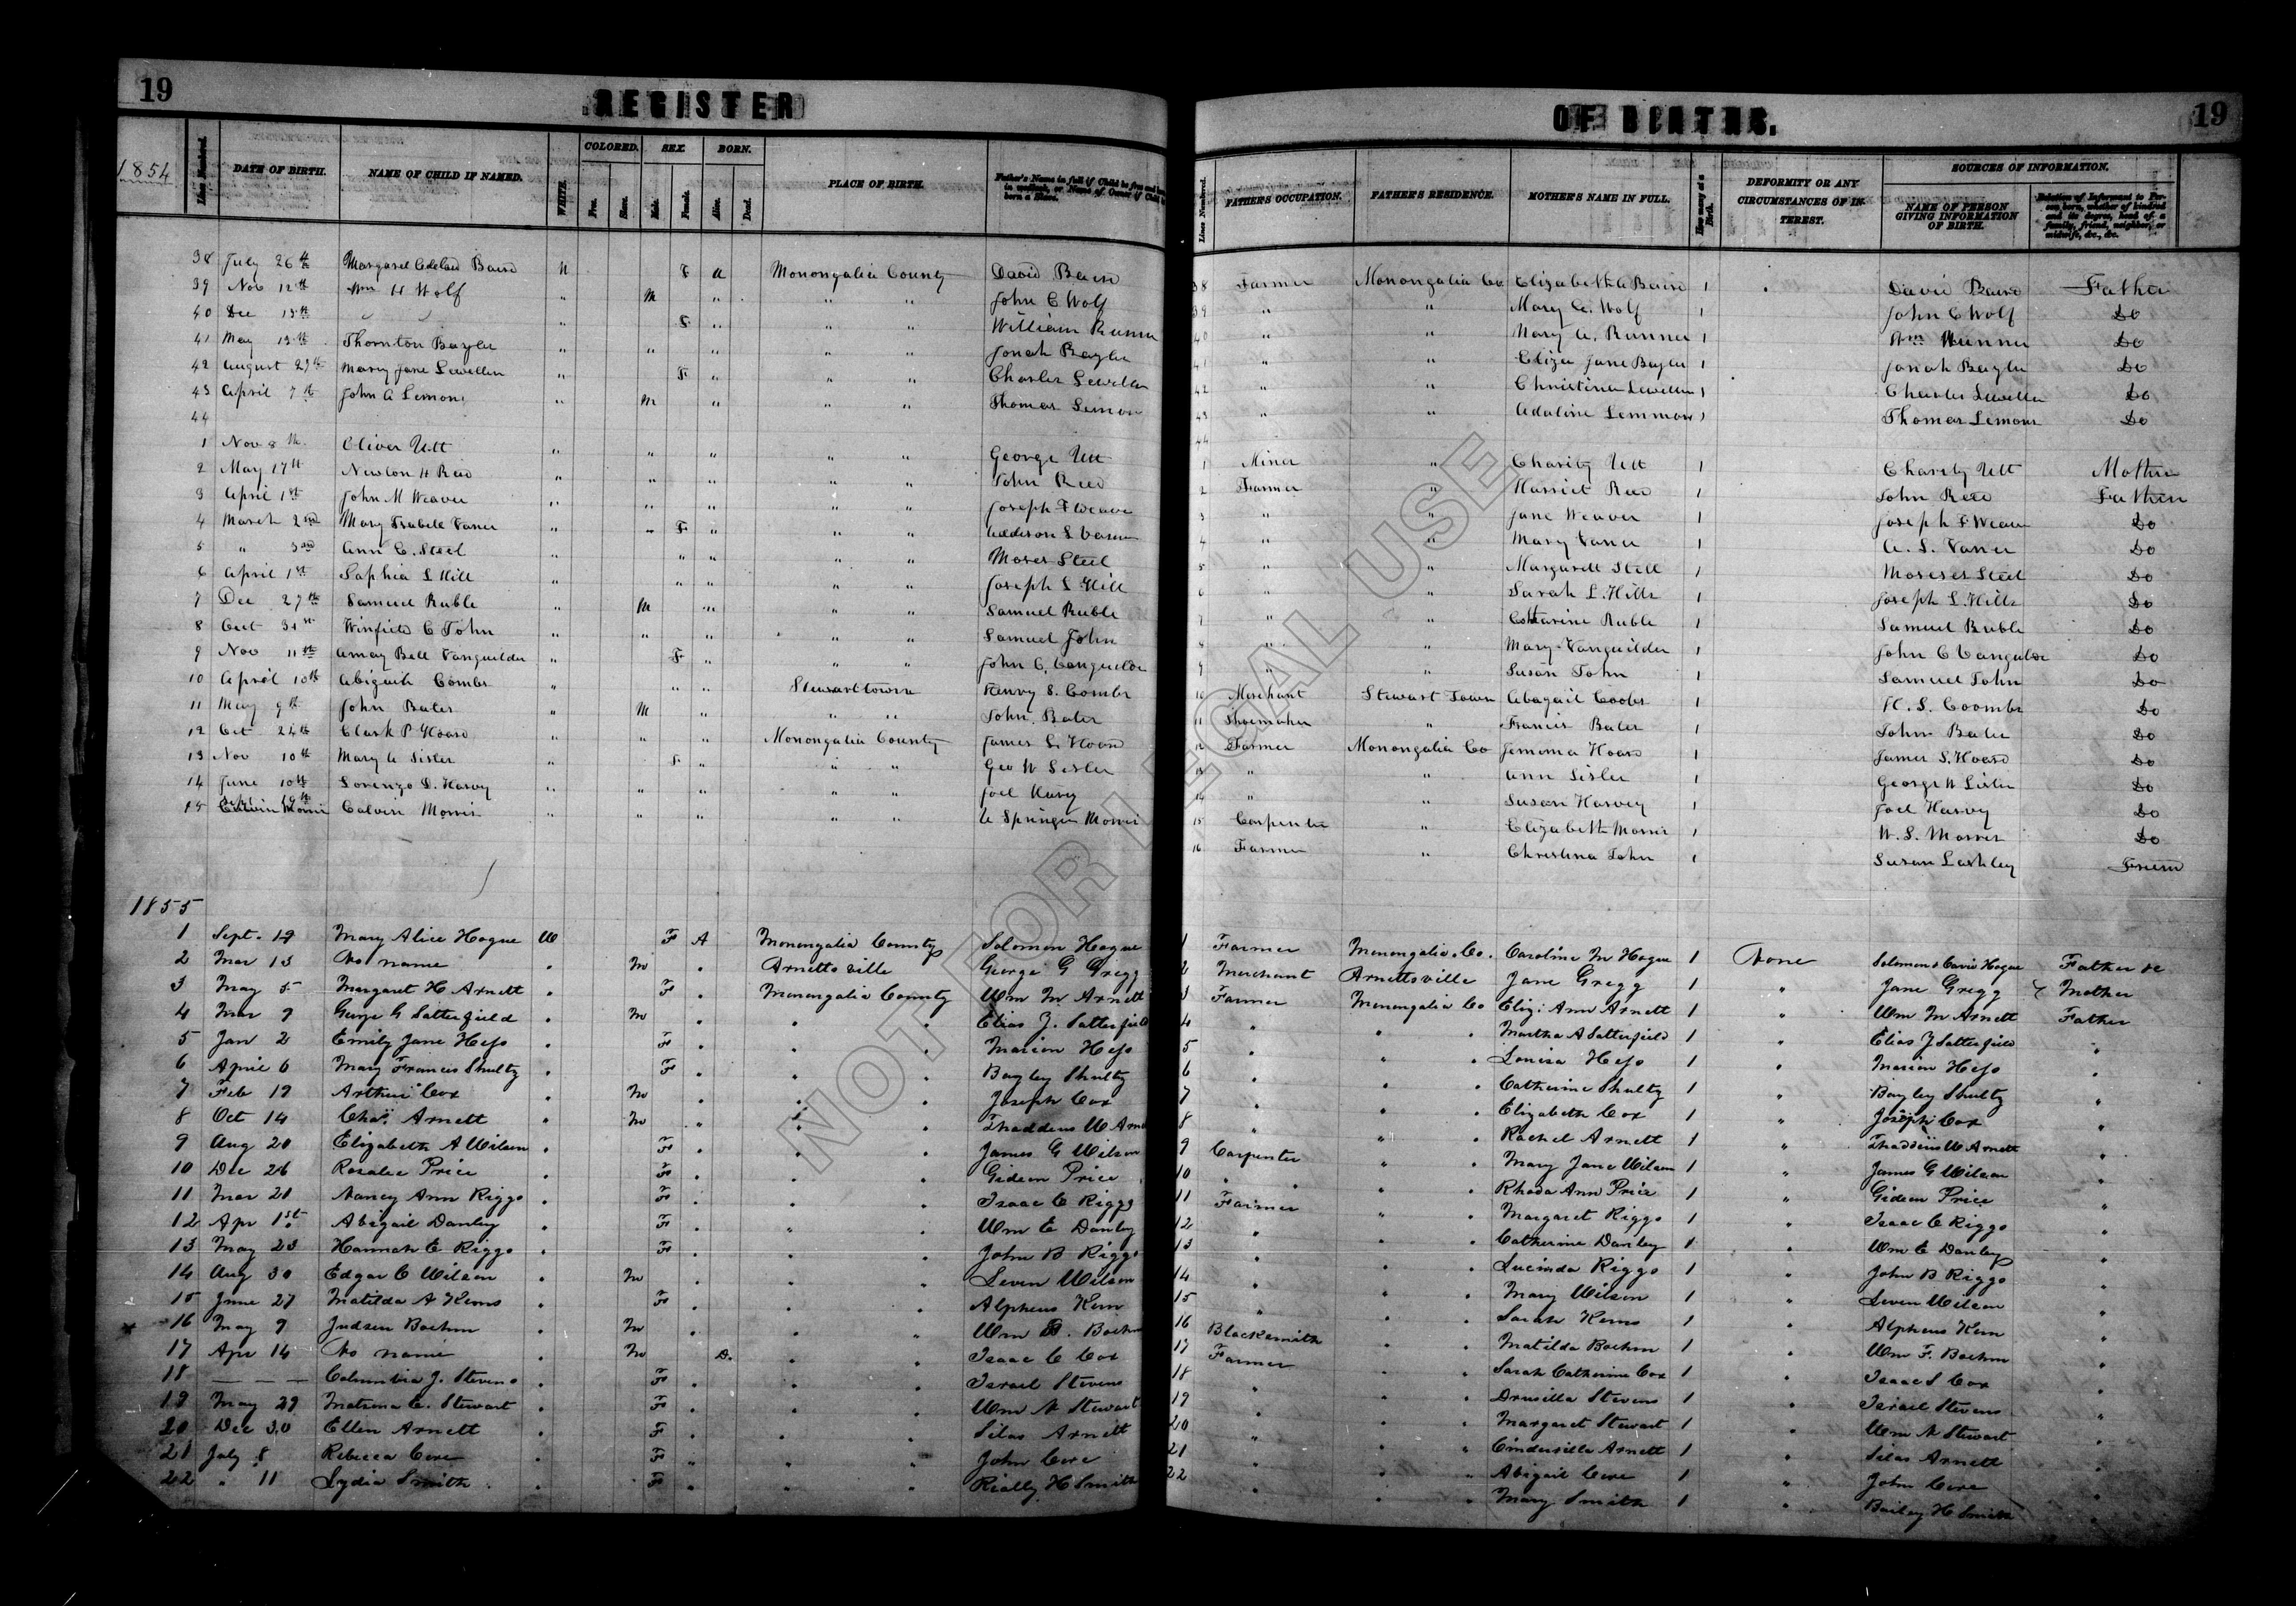 19
REGISTER
OF BIRTHS.
19
1854
Lines Numbered.
DATE OF BIRTH.
NAME OF CHILD IF NAMED.
WHITE.
COLORED.
Free.
Slave.
SEX.
Male.
Female.
BORN.
Alive.
Dead.
PLACE OF BIRTH.
Father's Name in full if Child be free and born in wedlock, or Name of Owner if Child be born a Slave.
Lines Numbered.
FATHER'S OCCUPATION.
FATHER'S RESIDENCE.
MOTHER'S NAME IN FULL.
How many at a Birth.
DEFORMITY OR ANY CIRCUMSTANCES OF INTEREST.
SOURCES OF INFORMATION.
NAME OF PERSON GIVING INFORMATION OF BIRTH.
Relation of Informant to Person born, whether of kindred and its degree, head of a family, friend, neighbor, or midwife, &c., &c.
38 July 26th Margaret Adelad Baird W F A Monongalia County David Baird 38 Farmer Monongalia Co Elizabeth A Baird 1 David Baird Father
39 Nov 12th Wm H Wolf " M " " " John C Wolf 39 " " Mary A. Wolf 1 John C Wolf Do
40 Dec 15th " F " " " William Runner 40 " " Mary A. Runner 1 Wm Runner Do
41 May 13th Thornton Bayler " " " " " Jonah Bayler 41 " " Eliza Jane Bayler 1 Jonah Bayler Do
42 August 29th Mary Jane Lewellen " F " " " Charles Lewellen 42 " " Christina Lewellen 1 Charles Lewellen Do
43 April 7th John A Lemons " M " " " Thomas Lemon 43 " " Adaline Lemmon 1 Thomas Lemons Do
44 44
1 Nov 8th Oliver Utt " " " " " George Utt 1 Miner " Charity Utt 1 Charity Utt Mother
2 May 17th Newton H Reed " " " " " John Reed 2 Farmer " Harriet Reed 1 John Reed Father
3 April 1st John M Weaver " " " " " Joseph F Weaver 3 " " Jane Weaver 1 Joseph F Weaver Do
4 March 2nd Mary Isabell Vaner " " F " " " Addison S Vaner 4 " " Mary Vaner 1 A. S. Vaner Do
5 " 3rd Ann E. Steel " " " " " Moses Steel 5 " " Margarett Steel 1 Moses Steel Do
6 April 1st Saphia L Hill " " " " " Joseph L Hill 6 " " Sarah L. Hill 1 Joseph L. Hill Do
7 Dec 27th Samuel Ruble " M " " " Samuel Ruble 7 " " Catharine Ruble 1 Samuel Ruble Do
8 Oct 31st Winfield C John " " " " " Samuel John 8 " " Mary Vanguilder 1 John C Vanguilder Do
9 Nov 11th Amay Bell Vanguilder " F " " " John C. Vanguilder 9 " " Susan John 1 Samuel John Do
10 April 10th Abigail Combs " " " Stewarttown Henry S. Combs 10 Merchant Stewart Town Abagail Coombs 1 H. S. Coombs Do
11 May 9th John Bates " M " " " John Bates 11 Shoemaker " Francis Bates 1 John Bates Do
12 Oct 24th Clark P Hoard " " " Monongalia County James S. Hoard 12 Farmer Monongalia Co Jemima Hoard 1 James S. Hoard Do
13 Nov 10th Mary A Sisler " F " " " Geo W Sisler 13 " " Ann Sisler 1 George W Sisler Do
14 June 10th Lorenzo D. Harvey " " " " " Joel Harvey 14 " " Susan Harvey 1 Joel Harvey Do
15 Calvin Morris " " " " " Springer Morris 15 Carpenter " Elizabeth Morris 1 W. S. Morris Do
16 Farmer " Christina John 1 Susan Lashley Friend
1855
1 Sept. 19 Mary Alice Hogue W F A Monongalia County Solomon Hogue 1 Farmer Monongalia Co. Caroline M Hogue 1 None Solomon & Caro Hogue Father &c
2 Mar 13 No name " M " Arnettsville George G Gregg 2 Merchant Arnettsville Jane Gregg 1 " Jane Gregg Mother
3 May 5 Margaret H Arnett " F " Monongalia County Wm M Arnett 3 Farmer Monongalia Co Eliz: Ann Arnett 1 " Wm M Arnett Father
4 Mar 7 George G Satterfield " M " " " Elias Z. Satterfield 4 " " " Martha A Satterfield 1 " Elias Z Satterfield "
5 Jan 2 Emily Jane Hess " F " " " Marion Hess 5 " " " Louisa Hess 1 " Marion Hess "
6 April 6 Mary Francis Shultz " F " " " Bayley Shultz 6 " " " Catherine Shultz 1 " Bayley Shultz "
7 Feb 19 Arthur Cox " M " " " Joseph Cox 7 " " " Elizabeth Cox 1 " Joseph Cox "
8 Oct 14 Chas. Arnett " M " " " Thaddeus W Arnett 8 " " " Rachel Arnett 1 " Thaddeus W Arnett "
9 Aug 20 Elizabeth A Wilson " F " " " James G Wilson 9 Carpenter " " Mary Jane Wilson 1 " James G Wilson "
10 Dec 26 Rosalie Price " F " " " Gideon Price 10 " " " Rhoda Ann Price 1 " Gideon Price "
11 Mar 21 Nancy Ann Riggs " F " " " Isaac C Riggs 11 Farmer " " Margaret Riggs 1 " Isaac C Riggs "
12 Apr 1st Abigail Danley " F " " " Wm E Danley 12 " " " Catherine Danley 1 " Wm E Danley "
13 May 23 Hannah E Riggs " F " " " John B Riggs 13 " " " Lucinda Riggs 1 " John B Riggs "
14 Aug 30 Edgar C Wilson " M " " " Leven Wilson 14 " " " Mary Wilson 1 " Leven Wilson "
15 June 27 Matilda A Kerns " F " " " Alpheus Kern 15 " " " Sarah Kerns 1 " Alpheus Kern "
16 May 9 Judson Boehm " M " " " Wm F. Boehm 16 Blacksmith " " Matilda Boehm 1 " Wm F. Boehm "
17 Apr 14 No name " M D. " " Isaac C Cox 17 Farmer " " Sarah Catherine Cox 1 " Isaac S Cox "
18 — — — Columbia J. Stevens " F " " " Israel Stevens 18 " " " Drusilla Stevens 1 " Israel Stevens "
19 May 29 C. Stewart " F " " " Wm N Stewart 19 " " " Margaret Stewart 1 " Wm N Stewart "
20 Dec 30 Ellen Arnett " F " " " Silas Arnett 20 " " " Cinderilla Arnett 1 " Silas Arnett "
21 July 8 Rebecca Core " F " " " John Core 21 " " " Abigail Core 1 " John Core "
22 " 11 Lydia Smith " F " " " Rially H Smith 22 " " " Mary Smith 1 " Bailey H Smith "
NOT FOR LEGAL USE